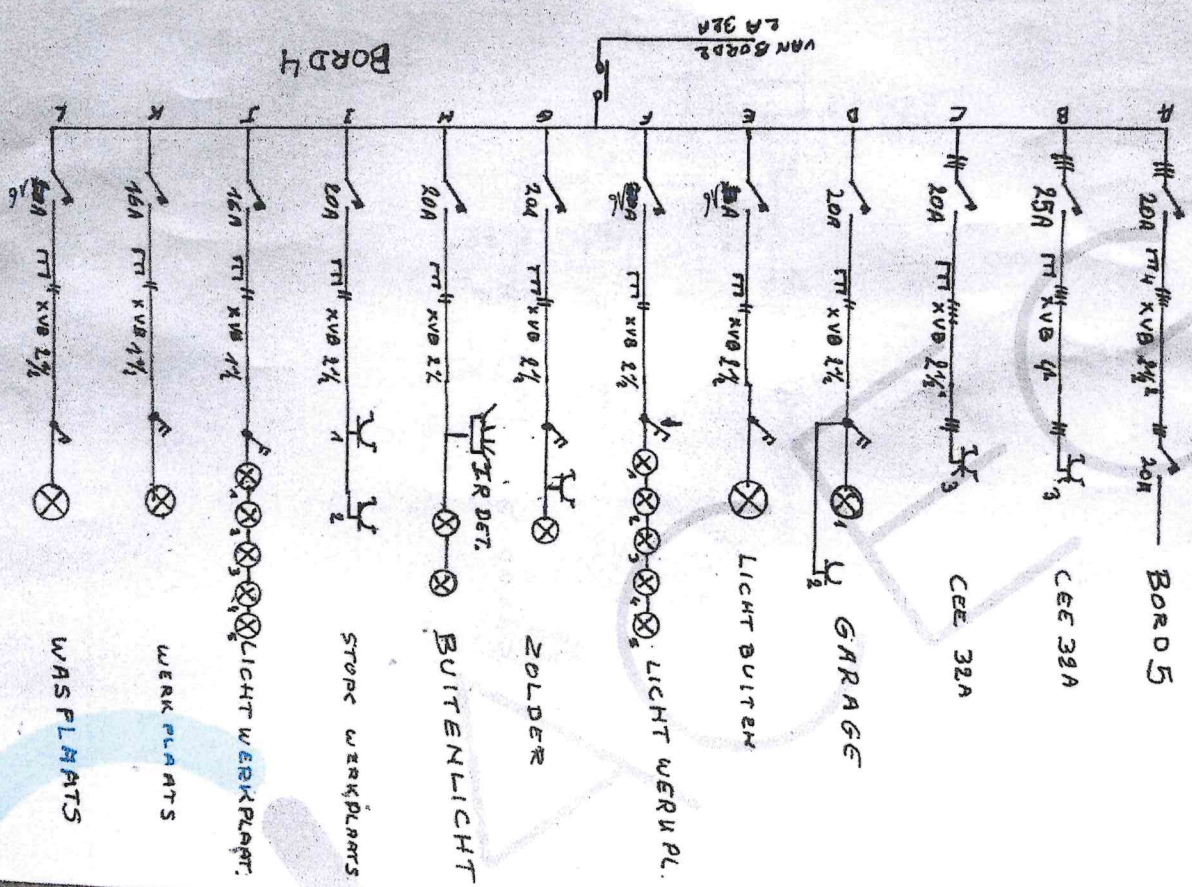 BORD 4
VAN BORD2
2A 32A
A 20A XVB 20A BORD 5
B 25A XVB CEE 32A
3
C 20A XVB 2½ CEE 32A
3
D 20A XVB 2½ GARAGE
1
2
E 16A XVB 2½ LICHT BUITEN
F 16A XVB 2½ LICHT WERKPL.
1 2 3 4 5
G 20A XVB 2½ ZOLDER
H 20A XVB 2½ IR DET. BUITENLICHT
I 20A XVB 2½ STOPC WERKPLAATS
1 2
J 16A XVB 1½ LICHT WERKPLAAT.
1 2 3 4 5
K 16A XVB 1½ WERKPLAATS
L 16A XVB 2½ WASPLAATS